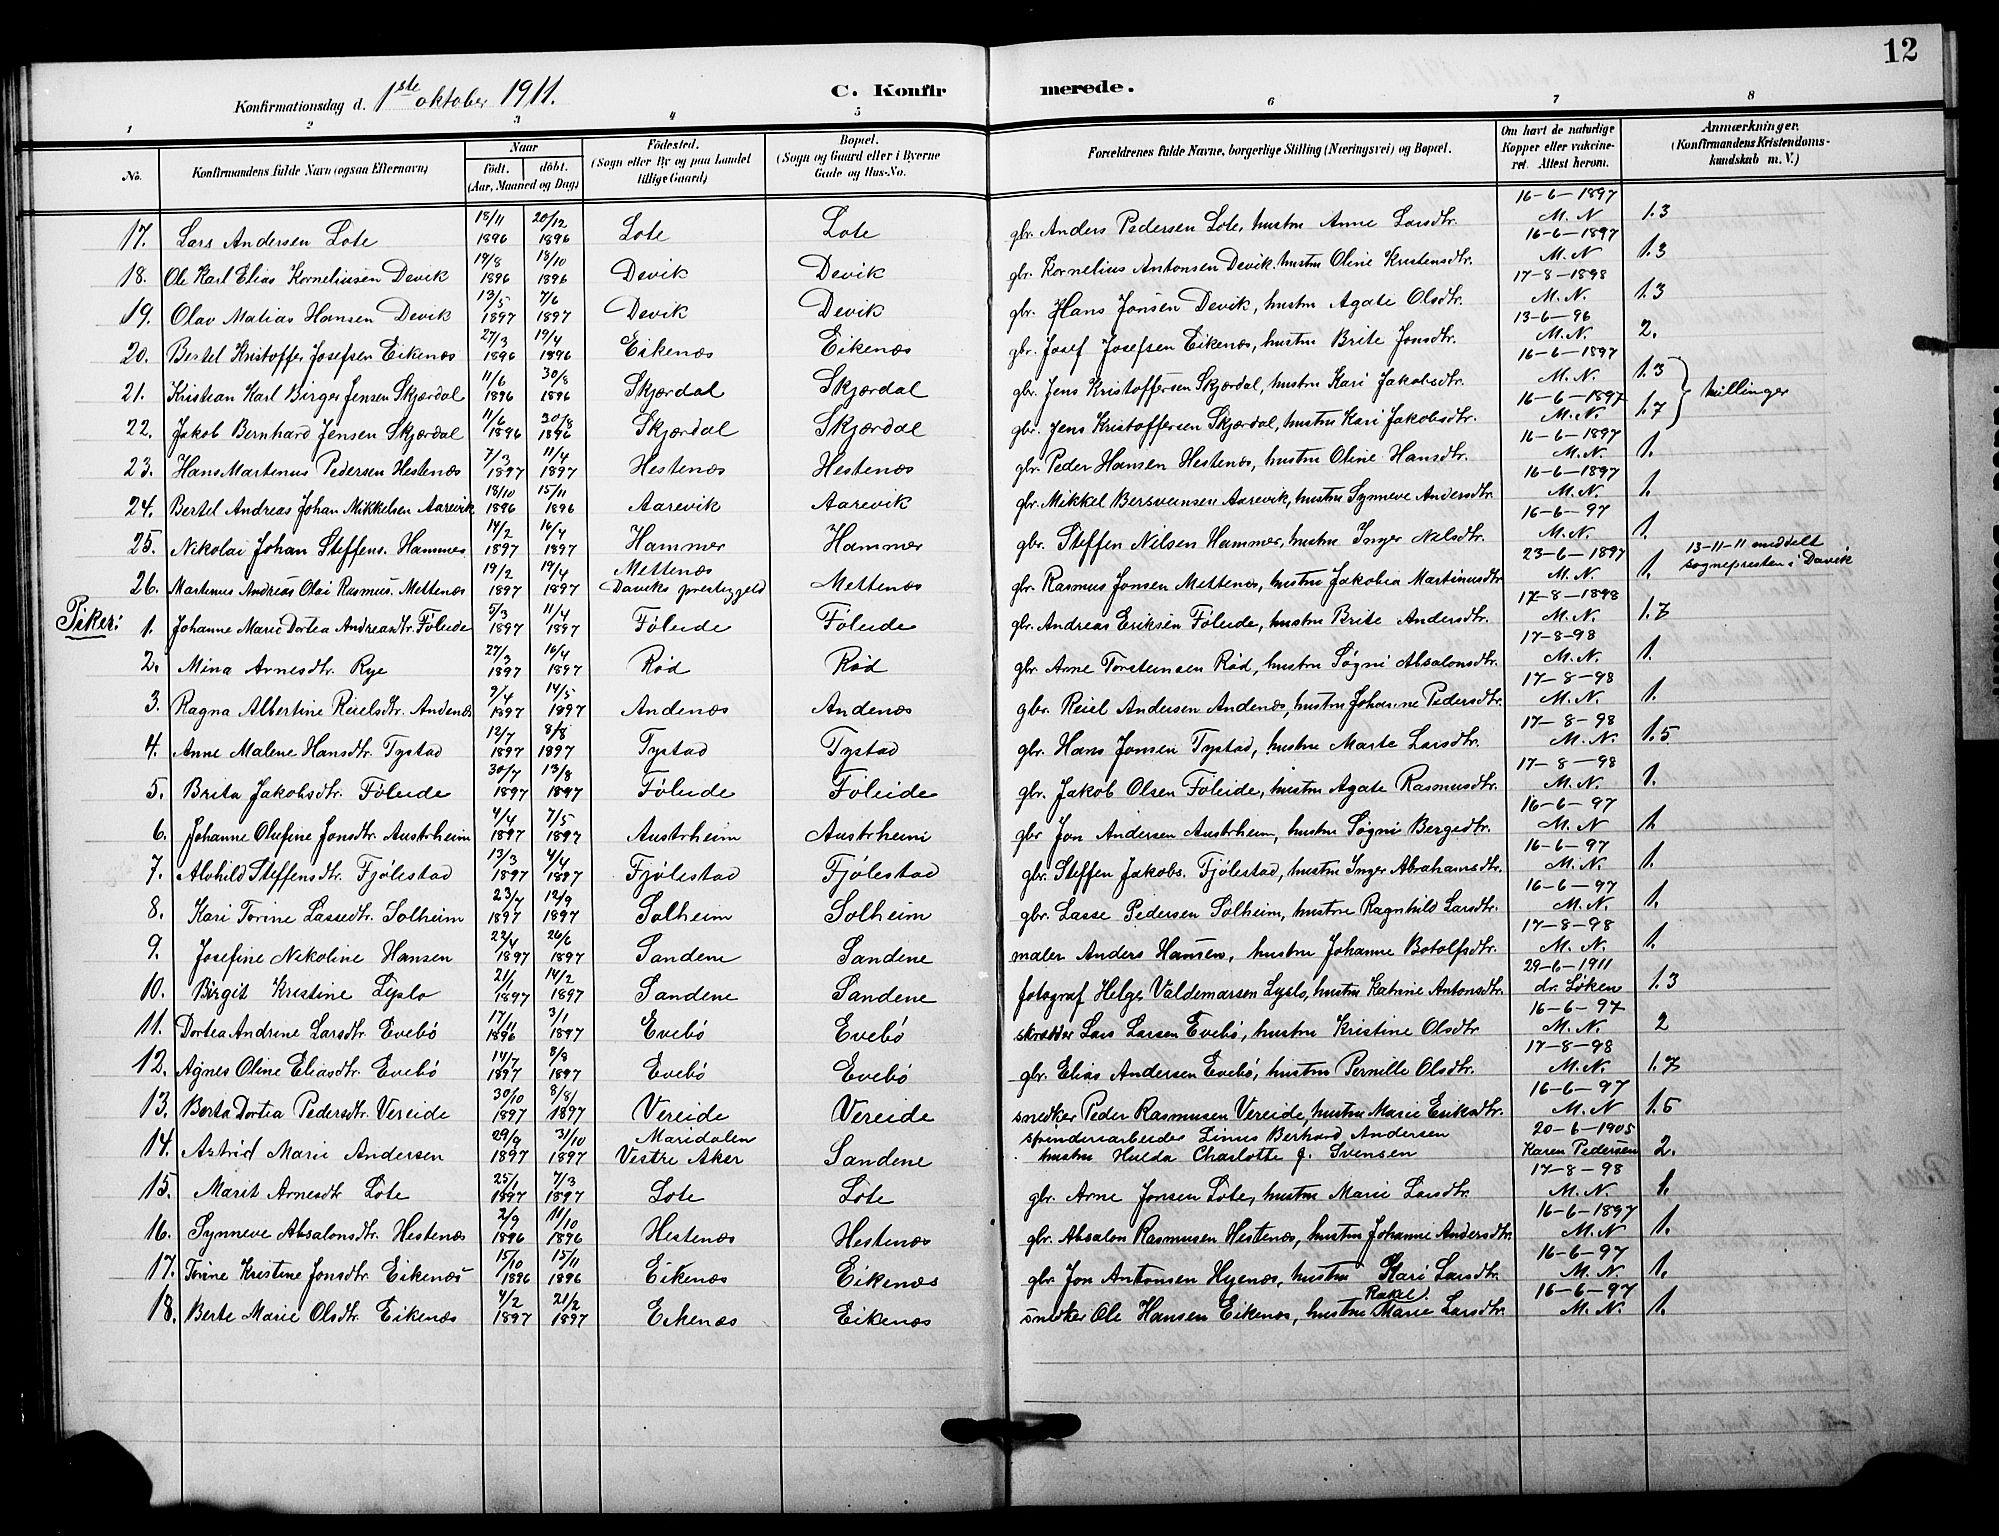 12
Konfirmationsdag d. 1ste oktober 1911. C. Konfirmerede.
1 2 3 4 5 6 7 8
No. Konfirmandens fulde Navn (ogsaa Efternavn) Naar født. døbt. (Aar, Maaned og Dag) Fødested. (Sogn eller By og paa Landet tillige Gaard) Bopæl. (Sogn og Gaard eller i Byerne Gade og Hus-No. Forældrenes fulde Navne, borgerlige Stilling (Næringsvei) og Bopæl. Om havt de naturlige Kopper eller vakcineret. Attest herom. Anmærkninger. (Konfirmandens Kristendomskundskab m. V.)
17. Lars Andersen Lote 18/11 1896 20/12 1896 Lote Lote gbr. Anders Pedersen Lote, hustru Anne Larsdtr. 16-6-1897 M. N 1.3
18. Ole Karl Elias Korneliusen Devik 19/8 1896 13/10 1896 Devik Devik gbr. Kornelius Antonsen Devik, hustru Oline Kristensdtr. 16-6-1897 M. N 1.3
19. Olav Matias Hansen Devik 13/5 1897 7/6 1897 Devik Devik gbr. Hans Jonsen Devik, hustru Agate Olsdtr. 17-8-1898 M. N. 1.3
20. Bertel Kristoffer Josefsen Eikenæs 27/3 1896 19/4 1896 Eikenæs Eikenæs gbr. Josef Josefsen Eikenæs, hustru Brite Jonsdtr. 13-6-96 M. N. 2.
21. Kristian Karl Birger Jensen Skjærdal 11/6 1896 30/8 1896 Skjærdal Skjærdal gbr. Jens Kristoffersen Skjærdal, hustru Kari Jakobsdtr. 16-6-1897 M. N. 1.3 tvillinger
22. Jakob Bernhard Jensen Skjærdal 11/6 1896 30/8 1896 Skjærdal Skjærdal gbr. Jens Kristoffersen Skjærdal, hustru Kari Jakobsdtr. 16-6-1897 M. N. 1.7
23. Hans Martinus Pedersen Hestenæs 7/3 1897 11/4 1897 Hestenæs Hestenæs gbr. Peder Hansen Hestenæs, hustru Oline Hansdtr. 16-6-1897 M. N. 1.
24. Bertel Andreas Johan Mikkelsen Aarevik 18/10 1896 15/11 1896 Aarevik Aarevik gbr. Mikkel Bersvensen Aarevik, hustru Synneve Andersdtr. 16-6-1897 M. N. 1.
25. Nikolai Johan Steffens. Hammer 14/2 1897 16/4 1897 Hammer Hammer gbr. Steffen Nilsen Hammer, hustru Inger Nilsdtr. 16-6-97 M. N. 1.
26. Martinus Andreas Olai Rasmus. Mettenæs 19/2 1897 19/4 1897 Mettenæs Daviks prestegjeld Mettenæs gbr. Rasmus Jonsen Mettenæs, hustru Jakobia Martinusdtr 23-6-1897 M. N. 1. 13-11-11 meddelt sognepresten i Davik
Piker:
1. Johanne Marie Dortea Andreasdtr. Føleide 5/3 1897 11/4 1897 Føleide Føleide gbr. Andreas Eriksen Føleide, hustru Brite Andersdtr. 17-8-1898 M. N. 1.7
2. Mina Arnesdtr. Rye 27/3 1897 16/4 1897 Rød Rød gbr. Arne Torsteinsen Rød, hustru Søgni Absalonsdtr. 17-8-98 M. N. 1.
3. Ragna Albertine Reielsdtr. Andenæs 9/4 1897 14/5 1897 Andenæs Andenæs gbr. Reiel Andersen Andenæs, hustru Johanne Pedersdtr. 17-8-98 M. N. 1.
4. Anne Malene Hansdtr. Tystad 12/7 1897 8/8 1897 Tystad Tystad gbr. Hans Jonsen Tystad, hustru Marte Larsdtr. 17-8-98 M. N. 1.5
5. Brita Jakobsdtr. Føleide 30/7 1897 13/8 1897 Føleide Føleide gbr. Jakob Olsen Føleide, hustru Agate Rasmusdtr. 17-8-98 M. N. 1.
6. Johanne Olufine Jonsdtr. Austrheim 4/4 1897 7/5 1897 Austrheim Austrheim gbr. Jon Andersen Austrheim, hustru Søgni Bergedtr. 16-6-97 M. N 1.
7. Alvhild Steffensdtr. Fjølestad 13/3 1897 4/4 1897 Fjølestad Fjølestad gbr. Steffen Jakobs. Fjølestad, hustru Inger Abrahamsdtr. 16-6-97 M. N. 1.
8. Kari Torine Lassedtr. Solheim 23/7 1897 12/9 1897 Solheim Solheim gbr. Lasse Pedersen Solheim, hustru Ragnhild Larsdtr. 16-6-97 M. N. 1.
9. Josefine Nikoline Hansen 22/4 1897 26/6 1897 Sandene Sandene maler Anders Hansen, hustru Johanne Botolfsdtr. 17-8-98 M. N. 1.
10. Birgit Kristine Lyslo 21/1 1897 14/2 1897 Sandene Sandene fotograf Helge Valdemarsen Lyslo, hustru Katrine Antonsdtr. 29-6-1911 dr. Løken 1.3
11. Dortea Andrine Larsdtr. Evebø 17/11 1896 3/1 1897 Evebø Evebø skrædder Lars Larsen Evebø, hustru Kristine Olsdtr 16-6-97 M. N. 2
12. Agnes Oline Eliasdtr. Evebø 14/7 1897 8/8 1897 Evebø Evebø gbr. Elias Andersen Evebø, hustru Pernille Olsdtr. 17-8-98 M. N. 1.7
13. Berta Dortea Pedersdtr. Vereide 30/10 1897 8/8 1897 Vereide Vereide snedker Peder Rasmusen Vereide, hustru Marie Eriksdtr. 16-6-97 M. N 1.5
14. Astrid Marie Andersen 29/9 1897 31/10 1897 Maridalen Vestre Aker Sandene spinderiarbeider Linus Berhard Andersen hustru Hulda Charlotte f. Svensen 20-6-1905 Karen Pedersen 2.
15. Marit Arnesdtr Lote 25/1 1897 7/3 1897 Lote Lote gbr. Arne Jonsen Lote, hustru Marie Larsdtr. 17-8-98 M. N. 1.
16. Synneve Absalonsdtr. Hestenæs 2/9 1896 11/10 1896 Hestenæs Hestenæs gbr. Absalon Rasmusen Hestenæs, hustru Johanne Andersdtr 16-6-1897 M. N 1.
17. Torine Kristine Jonsdtr. Eikenæs 15/10 1896 15/11 1896 Eikenæs Eikenæs gbr. Jon Antonsen Hyenæs, hustru Kari Larsdtr. 16-6-97 M. N. 1.
18. Berte Marie Olsdtr. Eikenæs 4/2 1897 21/2 1897 Eikenæs Eikenæs snedker Ole Hansen Eikenæs, hustru Rakel Marie Larsdtr. 16-6-97 M. N. 1.